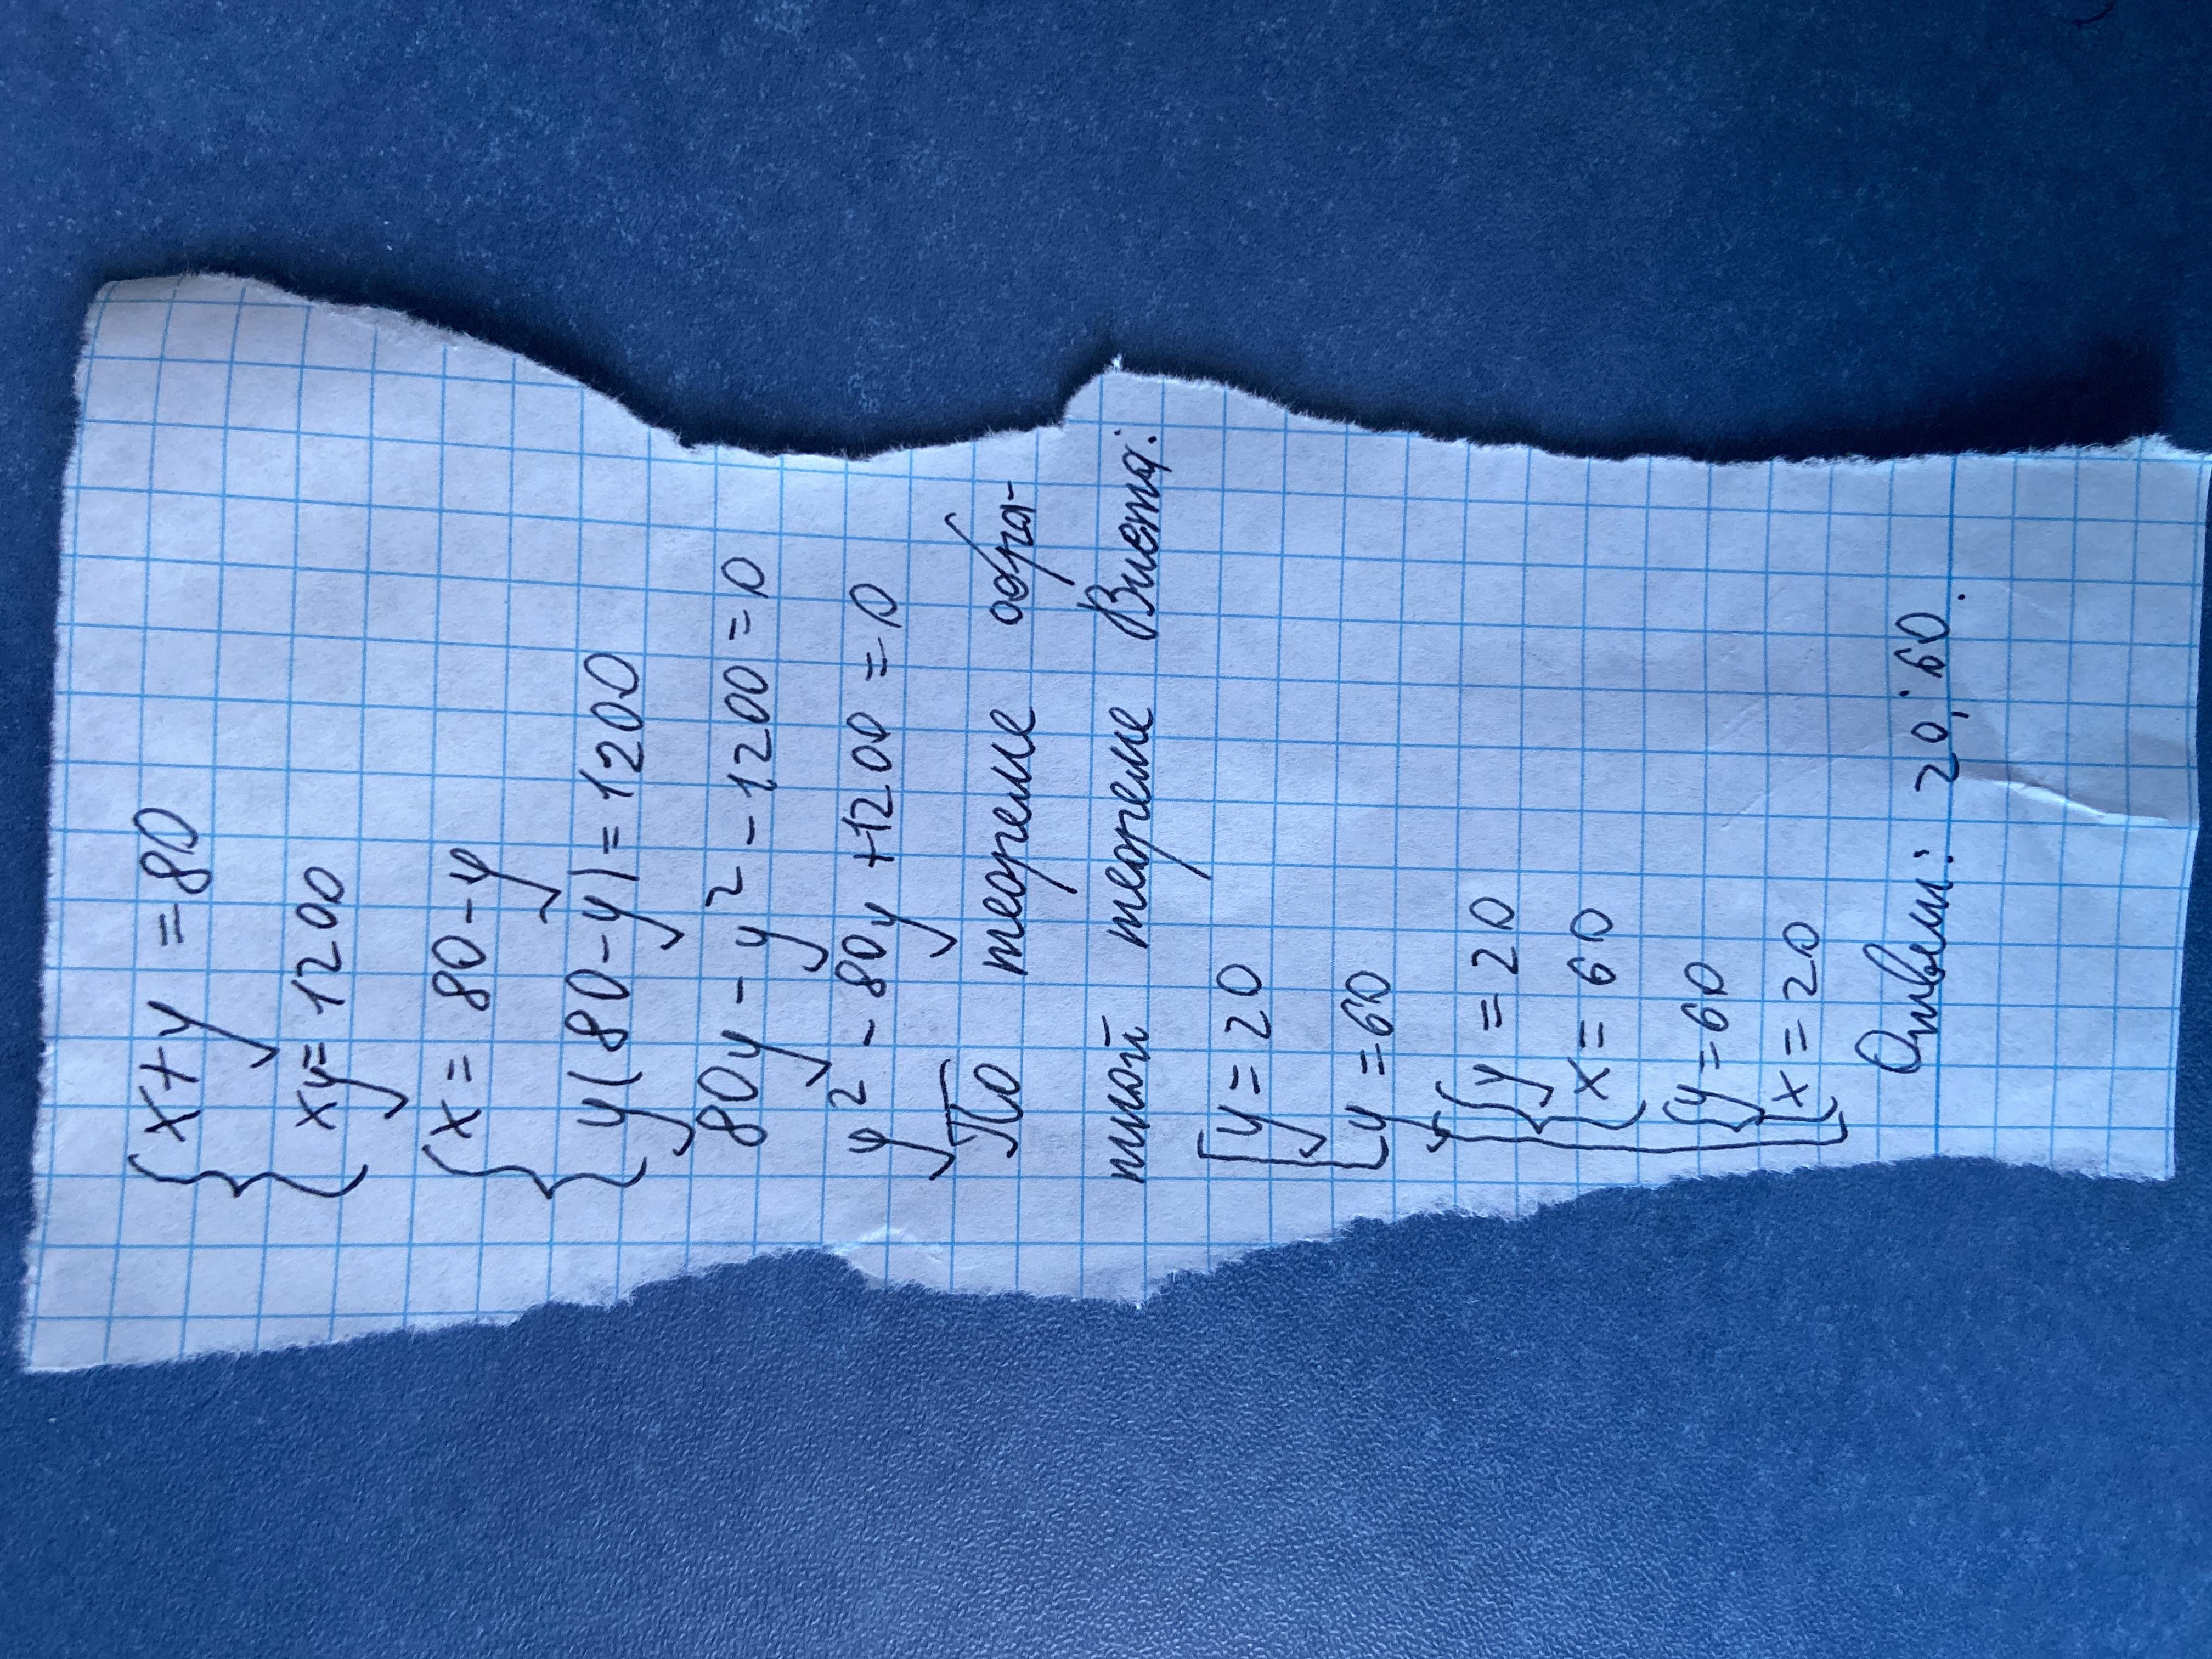 x+y=80
xy=1200
x=80-y
y(80-y)=1200
80y-y²-1200=0
y²-80y+1200=0
По теореме обра-
тной теореме Виета:
y=20
y=60
y=20
x=60
y=60
x=20
Ответ: 20; 60.